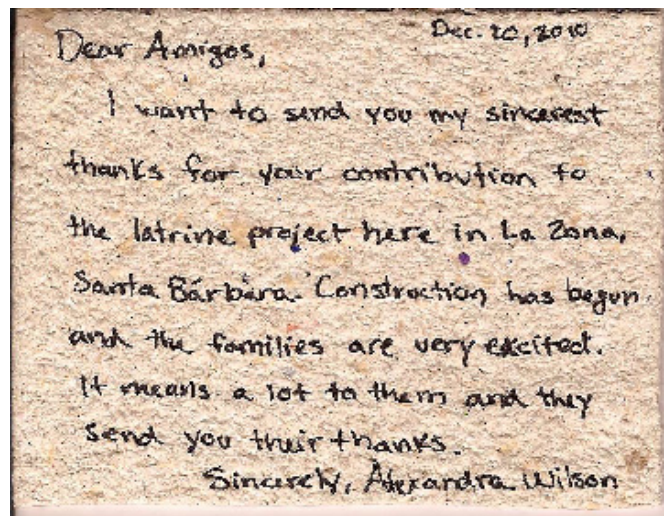 Dec. 20, 2010
Dear Amigos,
I want to send you my sincerest
thanks for your contribution to
the latrine project here in La Zona,
Santa Bárbara. Construction has begun
and the families are very excited.
It means a lot to them and they
send you their thanks.
Sincerely, Alexandra Wilson